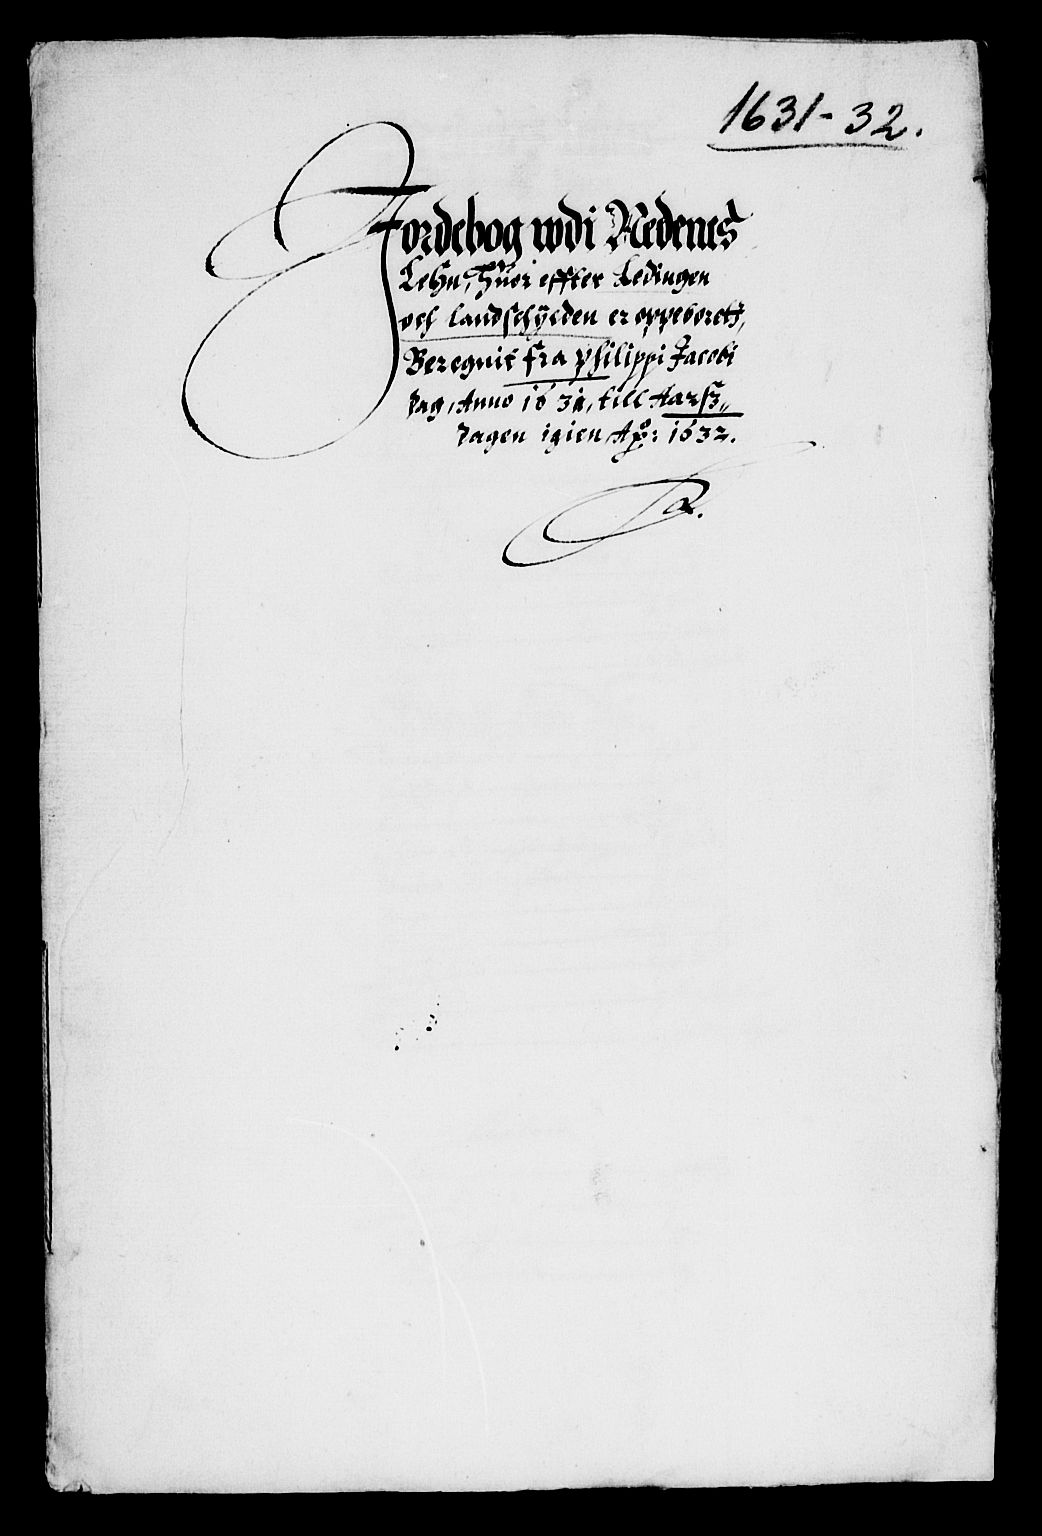 1631-32.
Jordebog wdi Nedenes
Lehn, Huor effter Ledingen
och landschÿlden er oppeborett,
Beregnit fra Philippi Jacobi
dag, Anno 1631, till Aarsz„
dagen igien Aō: 1632.